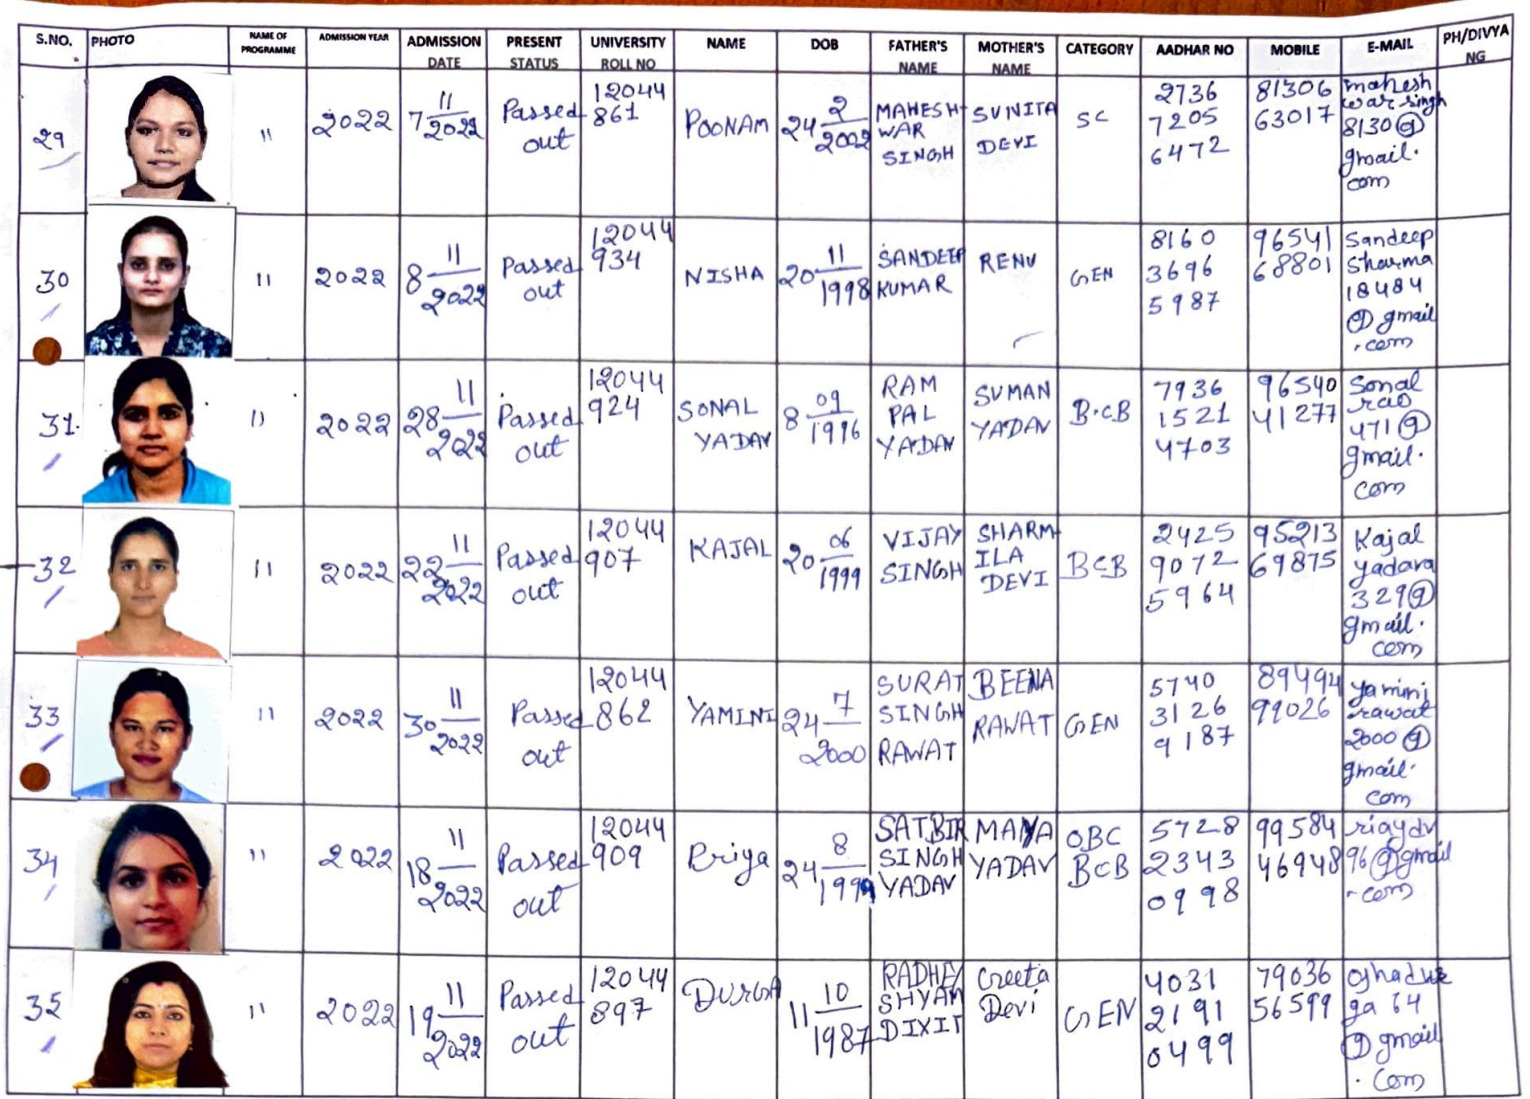 S.NO. PHOTO NAME OF PROGRAMME ADMISSION YEAR ADMISSION DATE PRESENT STATUS UNIVERSITY ROLL NO NAME DOB FATHER'S NAME MOTHER'S NAME CATEGORY AADHAR NO MOBILE E-MAIL PH/DIVYANG
29 " 2022 7 11/2022 Passed out 12044 861 POONAM 24 2/2002 MAHESHWAR SINGH SUNITA DEVI SC 2736 7205 6472 81306 63017 maheshwarsingh8130@gmail.com
30 " 2022 8 11/2022 Passed out 12044 934 NISHA 20 11/1998 SANDEEP KUMAR RENU GEN 8160 3696 5987 96541 68801 Sandeepsharma18484@gmail.com
31. " 2022 28 11/2022 Passed out 12044 924 SONAL YADAV 8 09/1996 RAM PAL YADAV SUMAN YADAV B.CB 7936 1521 4703 96540 41277 Sonalrao471@gmail.com
32 " 2022 22 11/2022 Passed out 12044 907 KAJAL 20 06/1999 VIJAY SINGH SHARMILA DEVI BCB 2425 9072 5964 95213 69875 Kajalyadava329@gmail.com
33 " 2022 30 11/2022 Passed out 12044 862 YAMINI 24 7/2000 SURAT SINGH RAWAT BEENA RAWAT GEN 5740 3126 9187 89494 99026 yaminirawat2000@gmail.com
34 " 2022 18 11/2022 Passed out 12044 909 Priya 24 8/1999 SATBIR SINGH YADAV MAYA YADAV OBC BCB 5728 2343 0998 99584 46948 riaydv96@gmail.com
35 " 2022 19 11/2022 Passed out 12044 897 DURGA 11 10/1987 RADHEY SHYAM DIXIT Geeta Devi GEN 4031 2191 0499 79036 56599 64@gmail.com